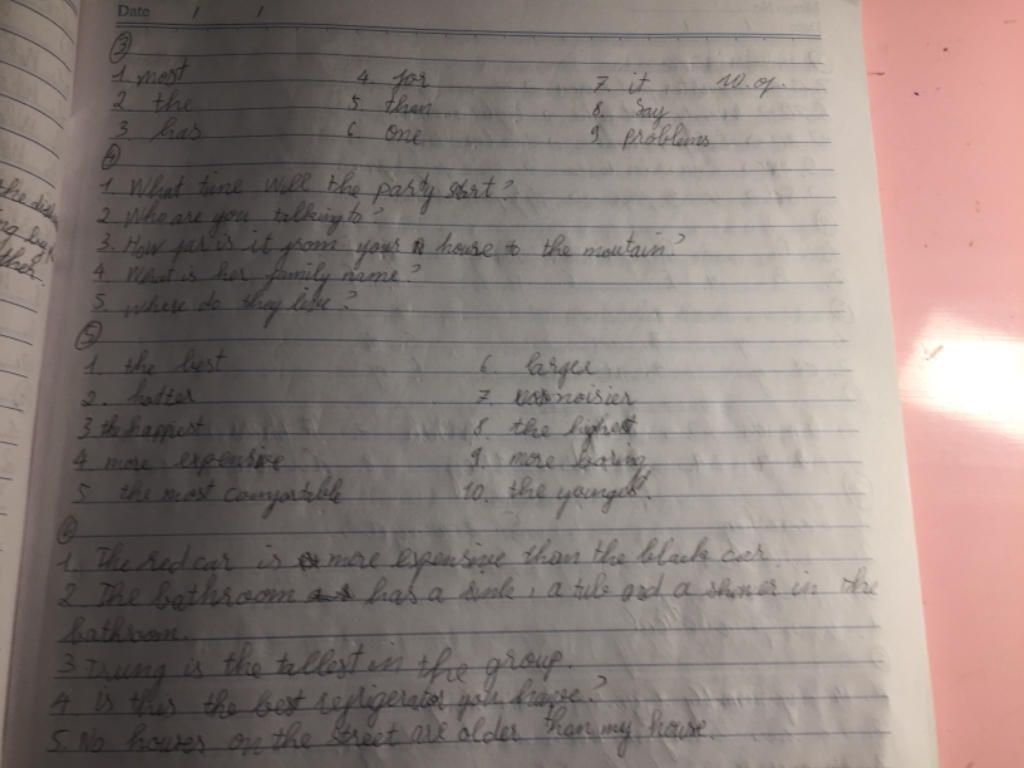 Date / /
③
1 most 4. for 7. it 10. of.
2 the 5. than 8. Say
3 has 6 one 9. problems
④
1 What time will the party start?
2 Who are you talking to?
3. How far is it from your house to the moutain?
4. What is her family name?
5. Where do they live?
⑤
1. the best 6. larger
2. hotter 7. noisier
3 the happiest 8. the highest
4 more expensive 9. more boring
5 the most comfortable 10. the youngest.
⑥
1. The red car is more expensive than the black car.
2 The bathroom has a sink, a tub and a shower in the
bathroom.
3 Trung is the tallest in the group.
4 Is this the best refrigerator you have?
5. No houses on the street are older than my house.